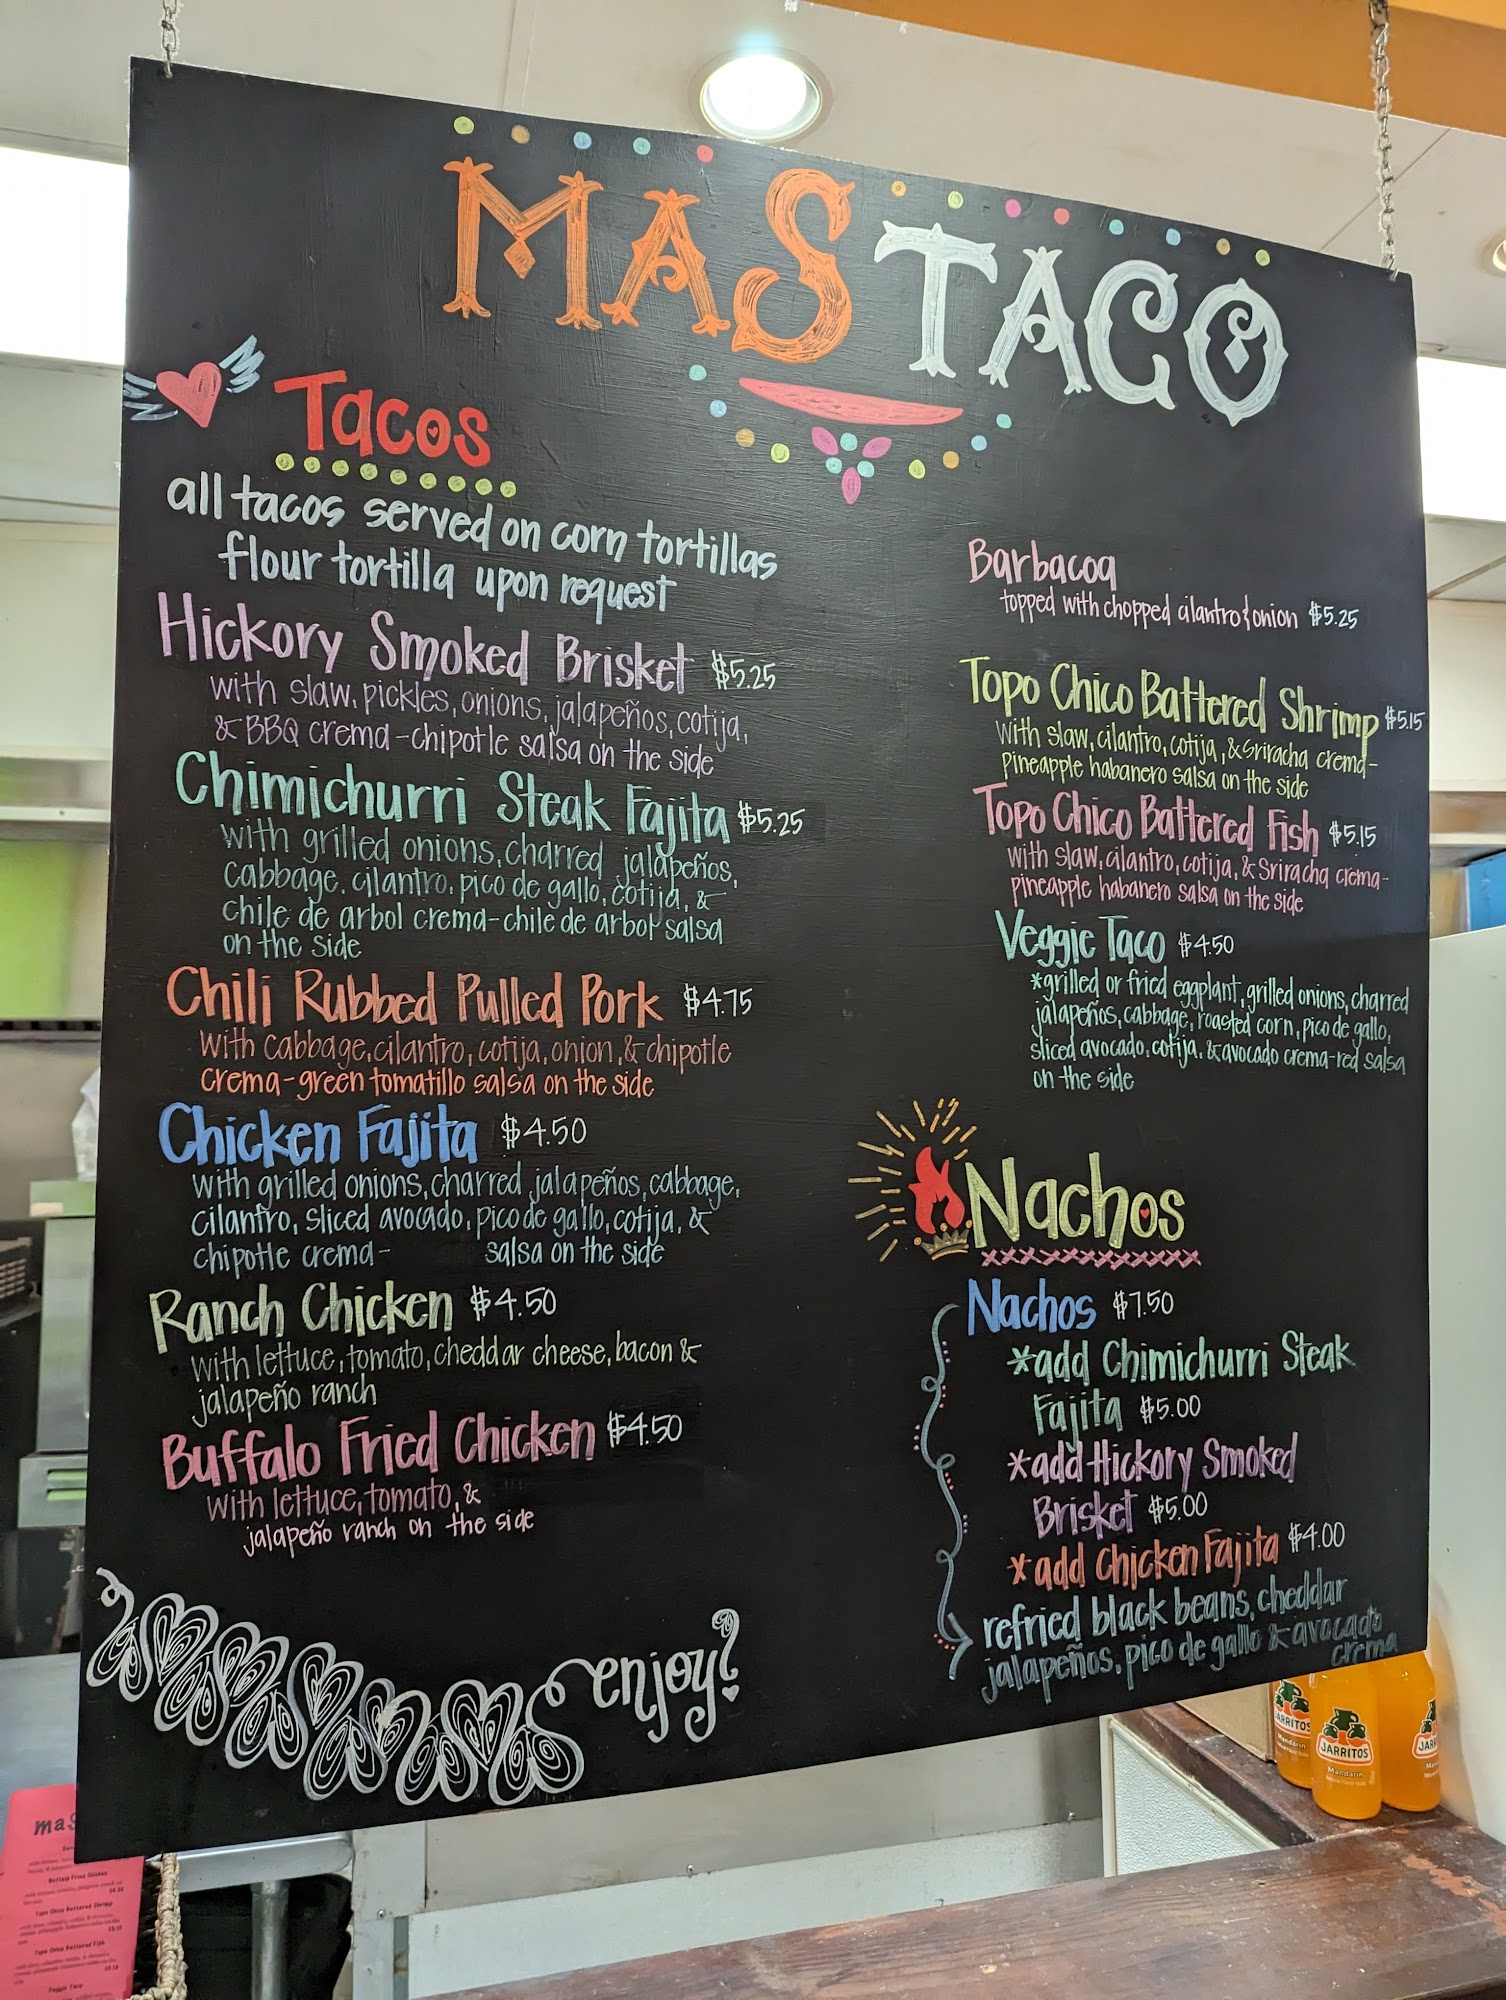 MAS TACO
Tacos
all tacos served on corn tortillas
flour tortilla upon request
Hickory Smoked Brisket $5.25
with slaw, pickles, onions, jalapeños, cotija,
& BBQ crema - chipotle salsa on the side
Chimichurri Steak Fajita $5.25
with grilled onions, charred jalapeños,
cabbage, cilantro, pico de gallo, cotija, &
chile de arbol crema - chile de arbol salsa
on the side
Chili Rubbed Pulled Pork $4.75
with cabbage, cilantro, cotija, onion, & chipotle
crema - green tomatillo salsa on the side
Chicken Fajita $4.50
with grilled onions, charred jalapeños, cabbage,
cilantro, sliced avocado, pico de gallo, cotija, &
chipotle crema - salsa on the side
Ranch Chicken $4.50
with lettuce, tomato, cheddar cheese, bacon &
jalapeño ranch
Buffalo Fried Chicken $4.50
with lettuce, tomato, &
jalapeño ranch on the side
enjoy!
Barbacoa
topped with chopped cilantro & onion $5.25
Topo Chico Battered Shrimp $5.15
with slaw, cilantro, cotija, & Sriracha crema -
pineapple habanero salsa on the side
Topo Chico Battered Fish $5.15
with slaw, cilantro, cotija, & Sriracha crema -
pineapple habanero salsa on the side
Veggie Taco $4.50
*grilled or fried eggplant, grilled onions, charred
jalapeños, cabbage, roasted corn, pico de gallo,
sliced avocado, cotija, & avocado crema - red salsa
on the side
Nachos
Nachos $7.50
*add Chimichurri Steak
Fajita $5.00
*add Hickory Smoked
Brisket $5.00
*add Chicken Fajita $4.00
refried black beans, cheddar
jalapeños, pico de gallo & avocado
crema
JARRITOS
JARRITOS
Mandarin
maS
Buffalo Fried Chicken
Topo Chico Battered Shrimp
Topo Chico Battered Fish
Veggie Taco